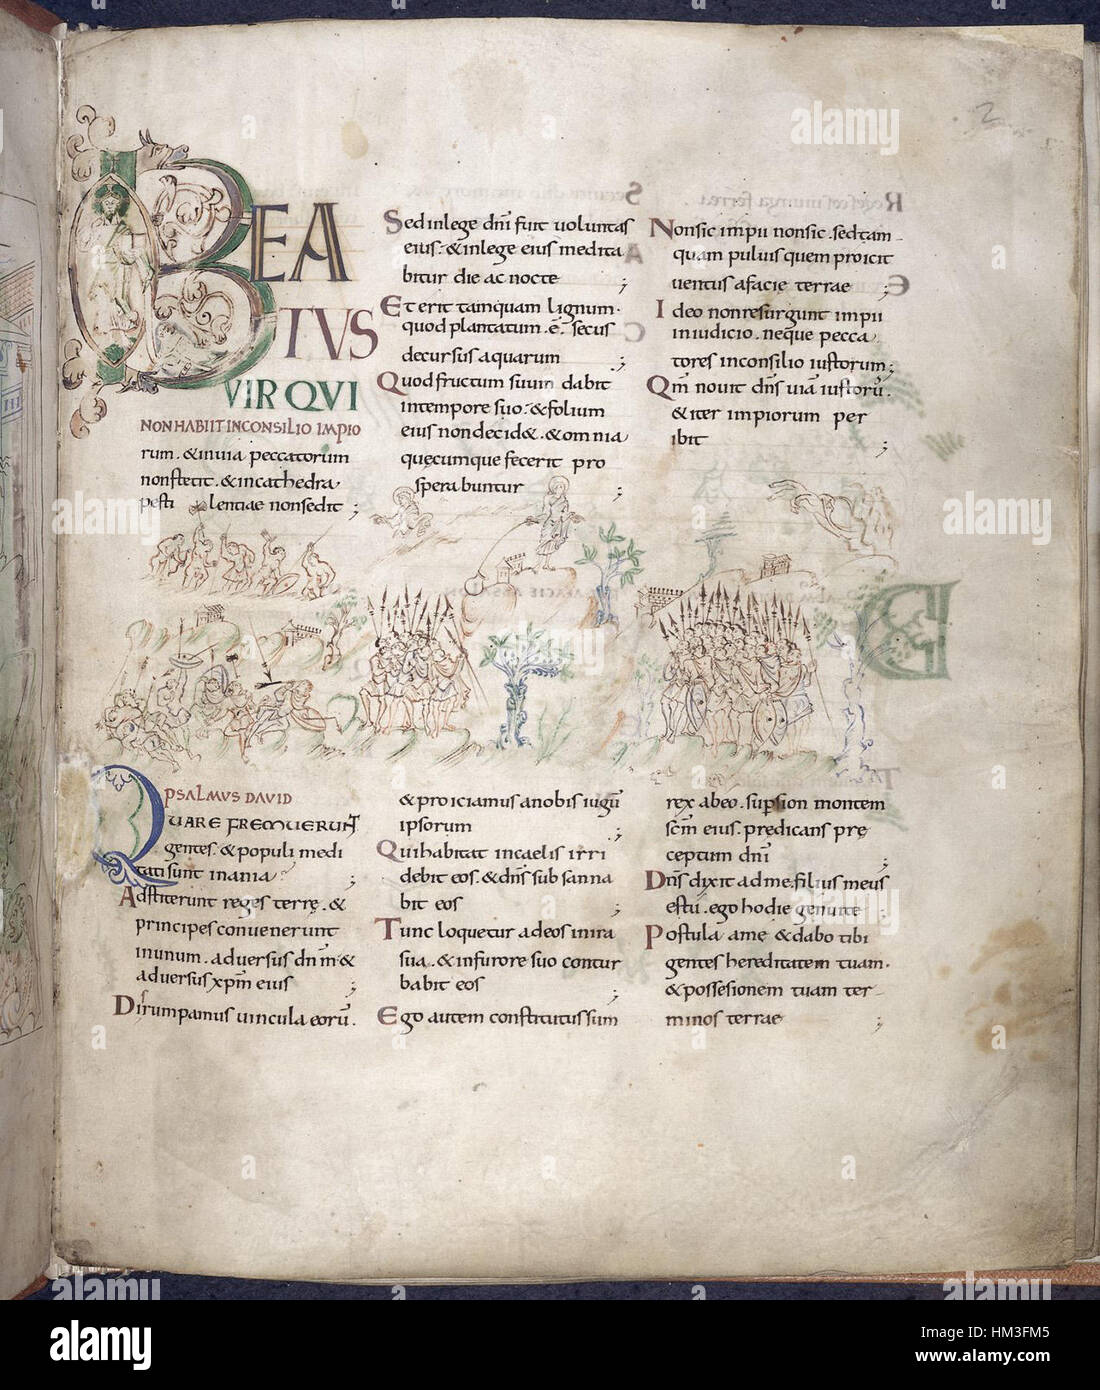 2
BEA
TVS
VIR QVI
NON HABIIT IN CONSILIO IMPIO
rum. & inuia peccatorum
nonstetit. & incathedra
pestilentiae nonsedit ;
Sed inlege dñi fuit uoluntas
eius. & inlege eius medita
bitur die ac nocte ;
Et erit tamquam lignum.
quod plantatum. ē. secus
decursus aquarum ;
Quod fructum suum dabit
intempore suo. & folium
eius non decid&. & omnia
quęcumque fecerit pro
spera buntur ;
Non sic impii non sic. sed tam
quam puluis quem proicit
uentus a facie terrae ;
Ideo non resurgunt impii
in iudicio. neque pecca
tores in consilio iustorum ;
Qm̄ nouit dn̄s uiā iustorū.
& iter impiorum per
ibit ;
PSALMUS DAVID
QUARE FREMUERUNT
gentes. & populi medi
tati sunt inania ;
Adstiterunt reges terrę. &
principes conuenerunt
inunum. aduersus dnm̄ &
aduersus xpm̄ eius ;
Dirumpamus uincula eorū.
& proiciamus a nobis iugū
ipsorum ;
Qui habitat in caelis irri
debit eos. & dn̄s sub sanna
bit eos ;
Tunc loquetur ad eos in ira
sua. & in furore suo contur
babit eos ;
Ego autem constitutus sum
rex abeo. sup sion montem
scm̄ eius. predicans pre
ceptum dnī ;
Dn̄s dixit ad me. filius meus
es tu. ego hodie genui te ;
Postula a me & dabo tibi
gentes hereditatem tuam.
& possesionem tuam ter
minos terrae ;
alamy
alamy
alamy
a
alamy
www.alamy.com
Image ID: HM3FM5